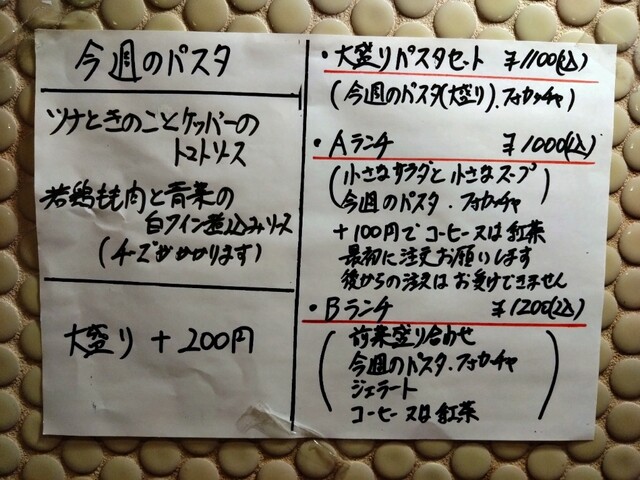 今週のパスタ
ツナときのことケッパーの
トマトソース
若鶏もも肉と青菜の
白ワイン煮込みソース
(チーズがかかります)
大盛り +200円
・大盛りパスタセット ¥1100(込)
(今週のパスタ(大盛り).フォカッチャ)
・Aランチ ¥1000(込)
(小さなサラダと小さなスープ
今週のパスタ.フォカッチャ)
+100円でコーヒー又は紅茶
最初に注文お願いします
後からの注文はお受けできません
・Bランチ ¥1200(込)
(前菜盛り合わせ
今週のパスタ.フォカッチャ
ジェラート
コーヒー又は紅茶)